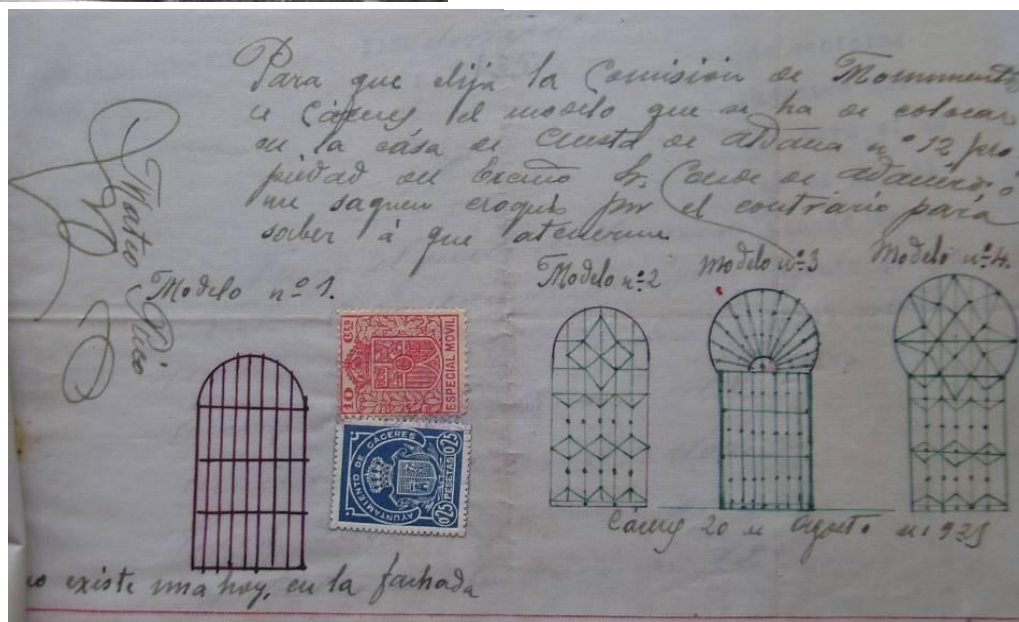 Para que elija la Comisión de Monumentos
de Cáceres el modelo que se ha de colocar
en la casa de Cuesta de Aldana nº 12 pro
piedad del Excmo Sr. Conde de Adanero ó
me saquen croquis por el contrario para
saber á que atenerme
Mateo
Modelo nº 1.
Modelo nº 2
Modelo nº 3
Modelo nº 4.
10 Cts
ESPECIAL MOVIL
AYUNTAMIENTO DE CÁCERES
0'25 PESETAS 0'25
Cáceres 20 de Agosto
existe una hoy, en la fachada